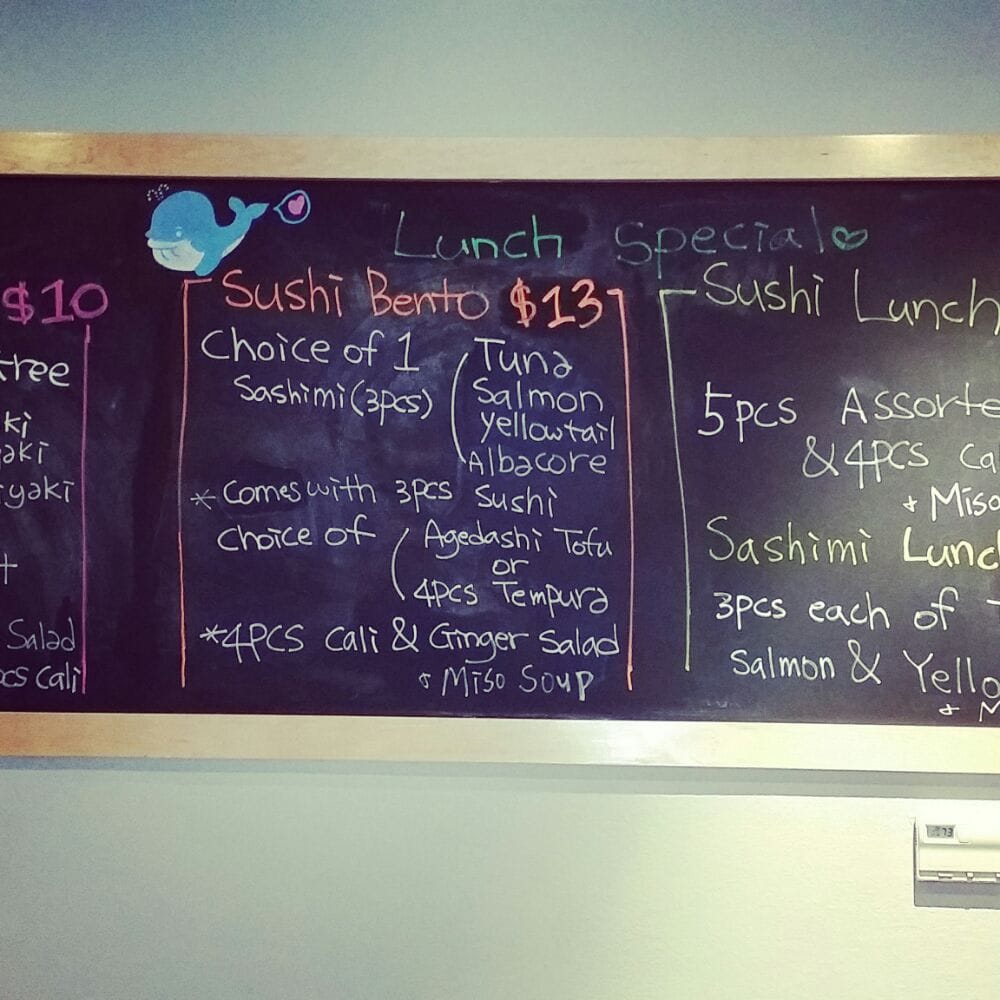 Lunch Special
$10
ki
aki
iyaki
Salad
pcs Cali
Sushi Bento $13
Choice of 1
Sashimi (3pcs)
Tuna
Salmon
Yellowtail
Albacore
* Comes with 3pcs Sushi
Choice of
Agedashi Tofu
or
4pcs Tempura
*4PCS Cali & Ginger Salad
& Miso Soup
Sushi Lunch
5pcs Assorte
& 4pcs Ca
+ Miso
Sashimi Lunc
3pcs each of T
Salmon & Yello
+ M
73